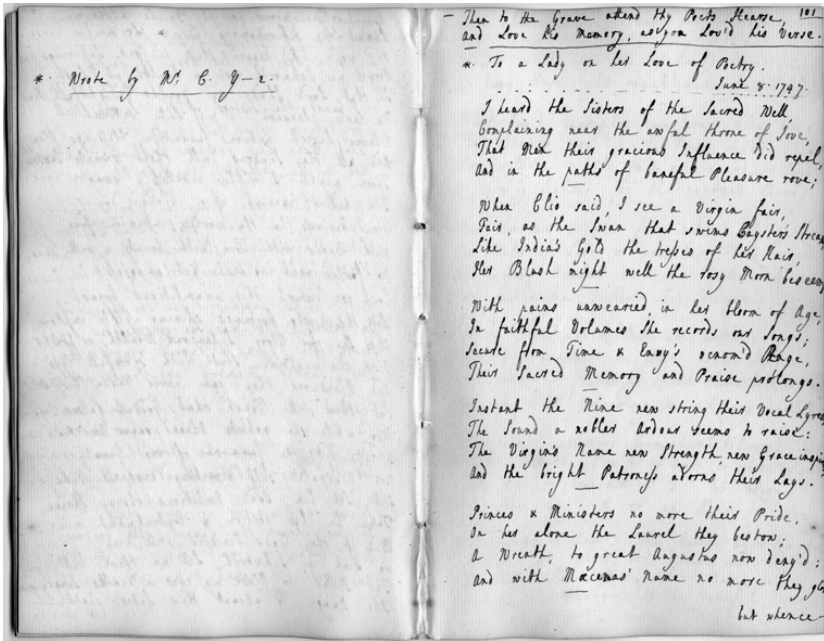 * Wrote by Mr. C. Y—e.
101
— Then to the Grave attend thy Poets Hearse,
and Love his Memory, as you Lov'd his Verse.
* To a Lady on her Love of Poetry.
June 8. 1747.
I heard the Sisters of the Sacred Well,
Complaining near the awful throne of Jove,
That Men their gracious Influence did repel,
And in the paths of baneful Pleasure rove;
When Clio said, I see a Virgin fair,
Fair, as the Swan that swims Cayster's Stream
Like India's Gold the tresses of her Hair,
Her Blush might well the rosy Morn beseem
With pains unwearied, in her bloom of Age,
In faithful Volumes She records our Songs;
Secure from Time & Envy's venom'd Rage,
Their Sacred Memory and Praise prolongs.
Instant the Nine new string their Vocal Lyres
The Sound a nobler Ardour seems to raise:
The Virgin's Name new Strength, new Grace inspires
And the bright Patroness adorns their Lays.
Princes & Ministers no more their Pride,
On her alone the Laurel they bestow;
A Wreath, to great Augustus now deny'd:
And with Mæcenas' Name no more they
but whence—